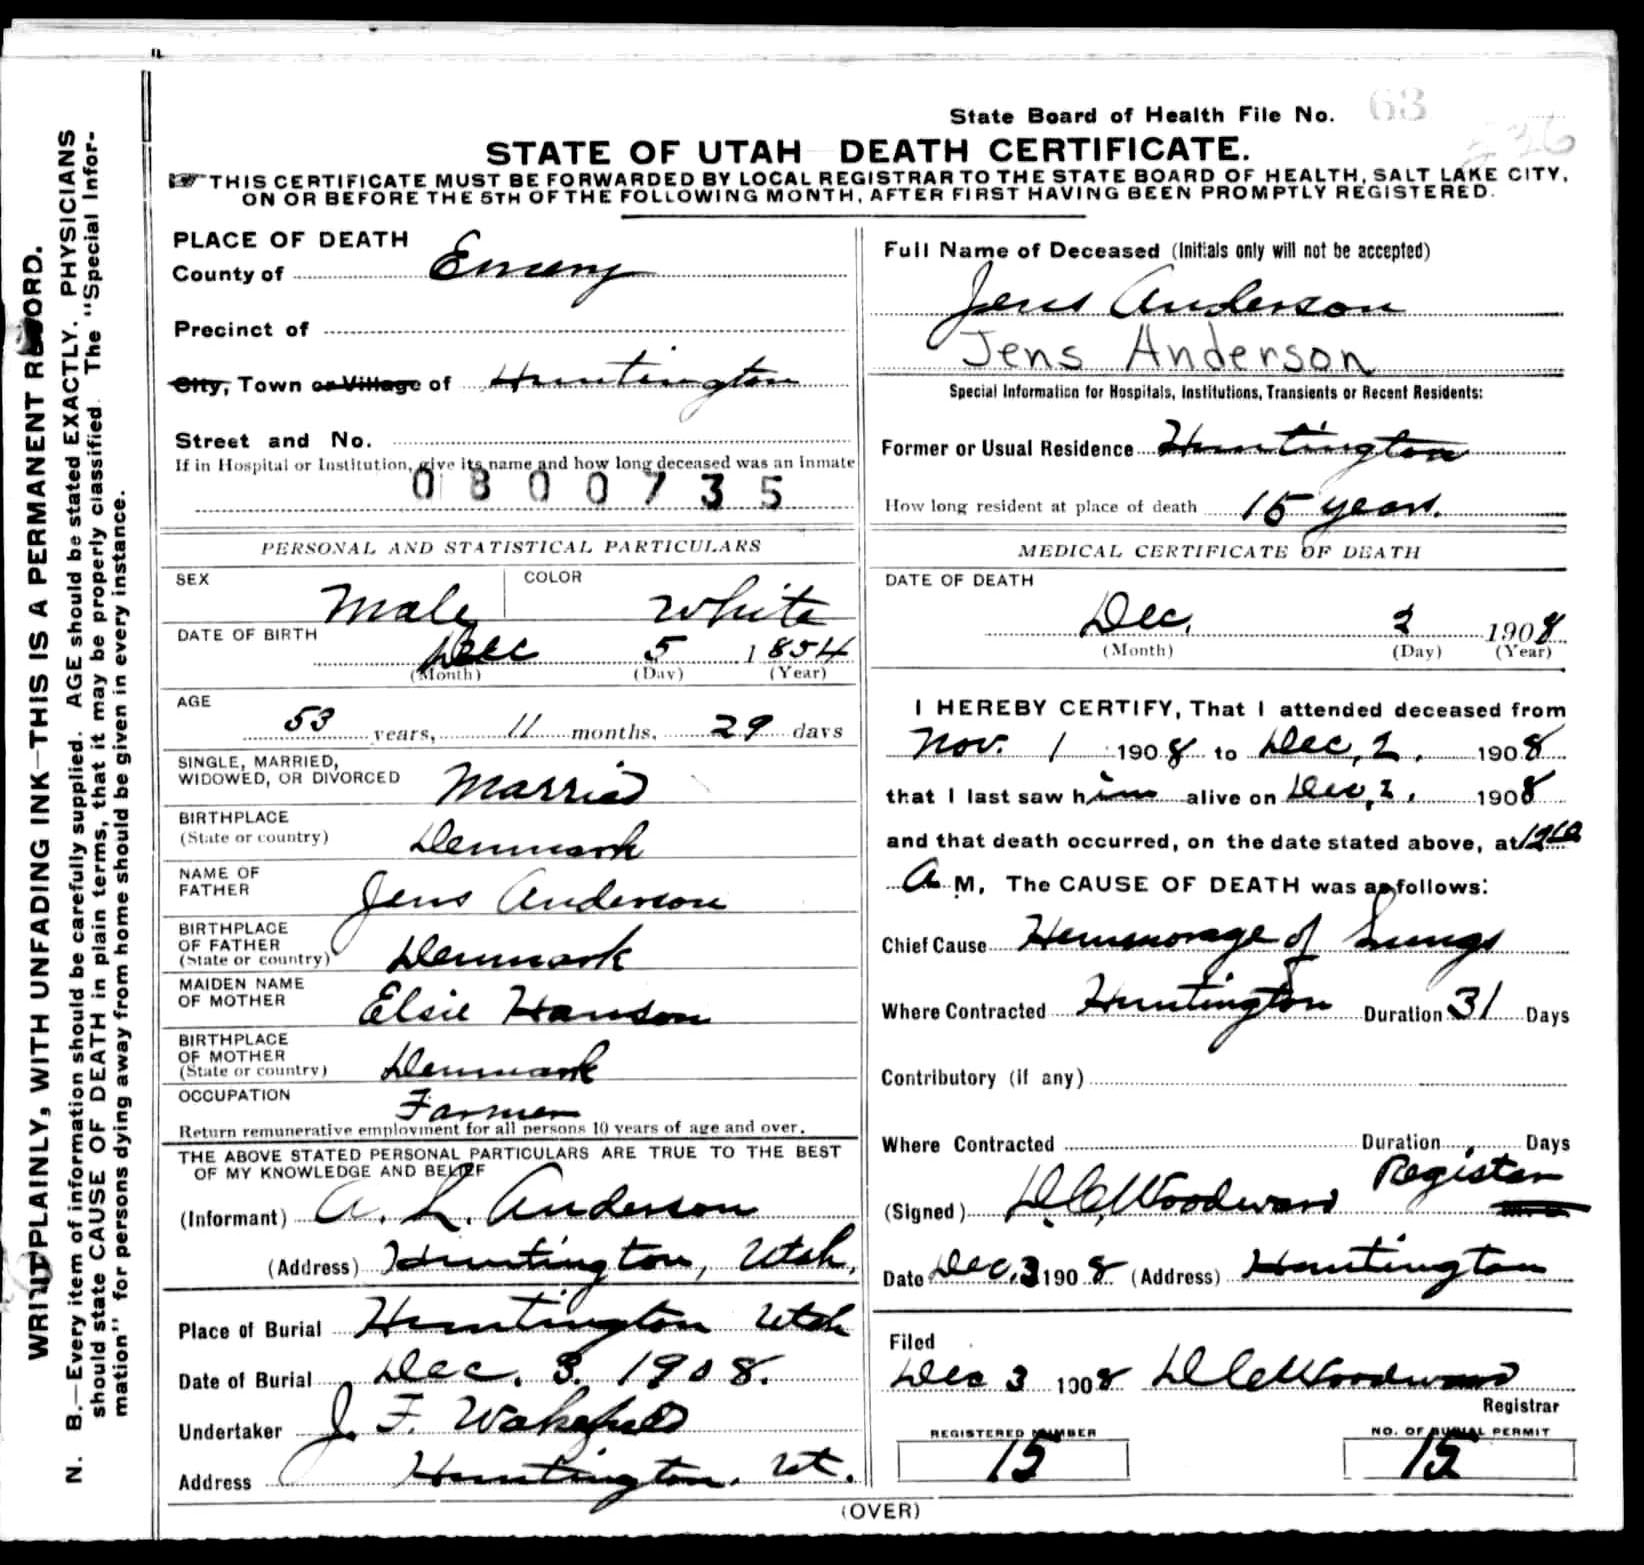 WRITE PLAINLY, WITH UNFADING INK—THIS IS A PERMANENT RECORD.
N. B.—Every item of information should be carefully supplied. AGE should be stated EXACTLY. PHYSICIANS
should state CAUSE OF DEATH in plain terms, that it may be properly classified. The "Special Infor-
mation" for persons dying away from home should be given in every instance.
State Board of Health File No. 63
236
STATE OF UTAH DEATH CERTIFICATE.
THIS CERTIFICATE MUST BE FORWARDED BY LOCAL REGISTRAR TO THE STATE BOARD OF HEALTH, SALT LAKE CITY,
ON OR BEFORE THE 5TH OF THE FOLLOWING MONTH, AFTER FIRST HAVING BEEN PROMPTLY REGISTERED.
PLACE OF DEATH
County of Emery
Precinct of
City, Town or Village of Huntington
Street and No.
If in Hospital or Institution, give its name and how long deceased was an inmate
0800735
PERSONAL AND STATISTICAL PARTICULARS
SEX Male COLOR White
DATE OF BIRTH Dec 5 1854
(Month) (Day) (Year)
AGE
53 years, 11 months, 29 days
SINGLE, MARRIED,
WIDOWED, OR DIVORCED Married
BIRTHPLACE
(State or country) Denmark
NAME OF
FATHER Jens Anderson
BIRTHPLACE
OF FATHER
(State or country) Denmark
MAIDEN NAME
OF MOTHER Elsie Hanson
BIRTHPLACE
OF MOTHER
(State or country) Denmark
OCCUPATION Farmer
Return remunerative employment for all persons 10 years of age and over.
THE ABOVE STATED PERSONAL PARTICULARS ARE TRUE TO THE BEST
OF MY KNOWLEDGE AND BELIEF
(Informant) A. L. Anderson
(Address) Huntington, Utah,
Place of Burial Huntington Utah
Date of Burial Dec. 3. 1908.
Undertaker J. F. Wakefield
Address Huntington. Ut.
Full Name of Deceased (Initials only will not be accepted)
Jens Anderson
Jens Anderson
Special Information for Hospitals, Institutions, Transients or Recent Residents:
Former or Usual Residence Huntington
How long resident at place of death 15 years.
MEDICAL CERTIFICATE OF DEATH
DATE OF DEATH
Dec. 2 1908
(Month) (Day) (Year)
I HEREBY CERTIFY, That I attended deceased from
Nov. 1 1908 to Dec, 2, 1908
that I last saw him alive on Dec, 2, 1908
and that death occurred, on the date stated above, at
A M. The CAUSE OF DEATH was as follows:
Chief Cause Hemmorage of Lungs
Where Contracted Huntington Duration 31 Days
Contributory (if any)
Where Contracted Duration Days
(Signed) D. C. Woodward Register
Date Dec. 3 1908 (Address) Huntington
Filed
Dec 3 1908 D C Woodward
Registrar
REGISTERED NUMBER
15
NO. OF BURIAL PERMIT
15
(OVER)